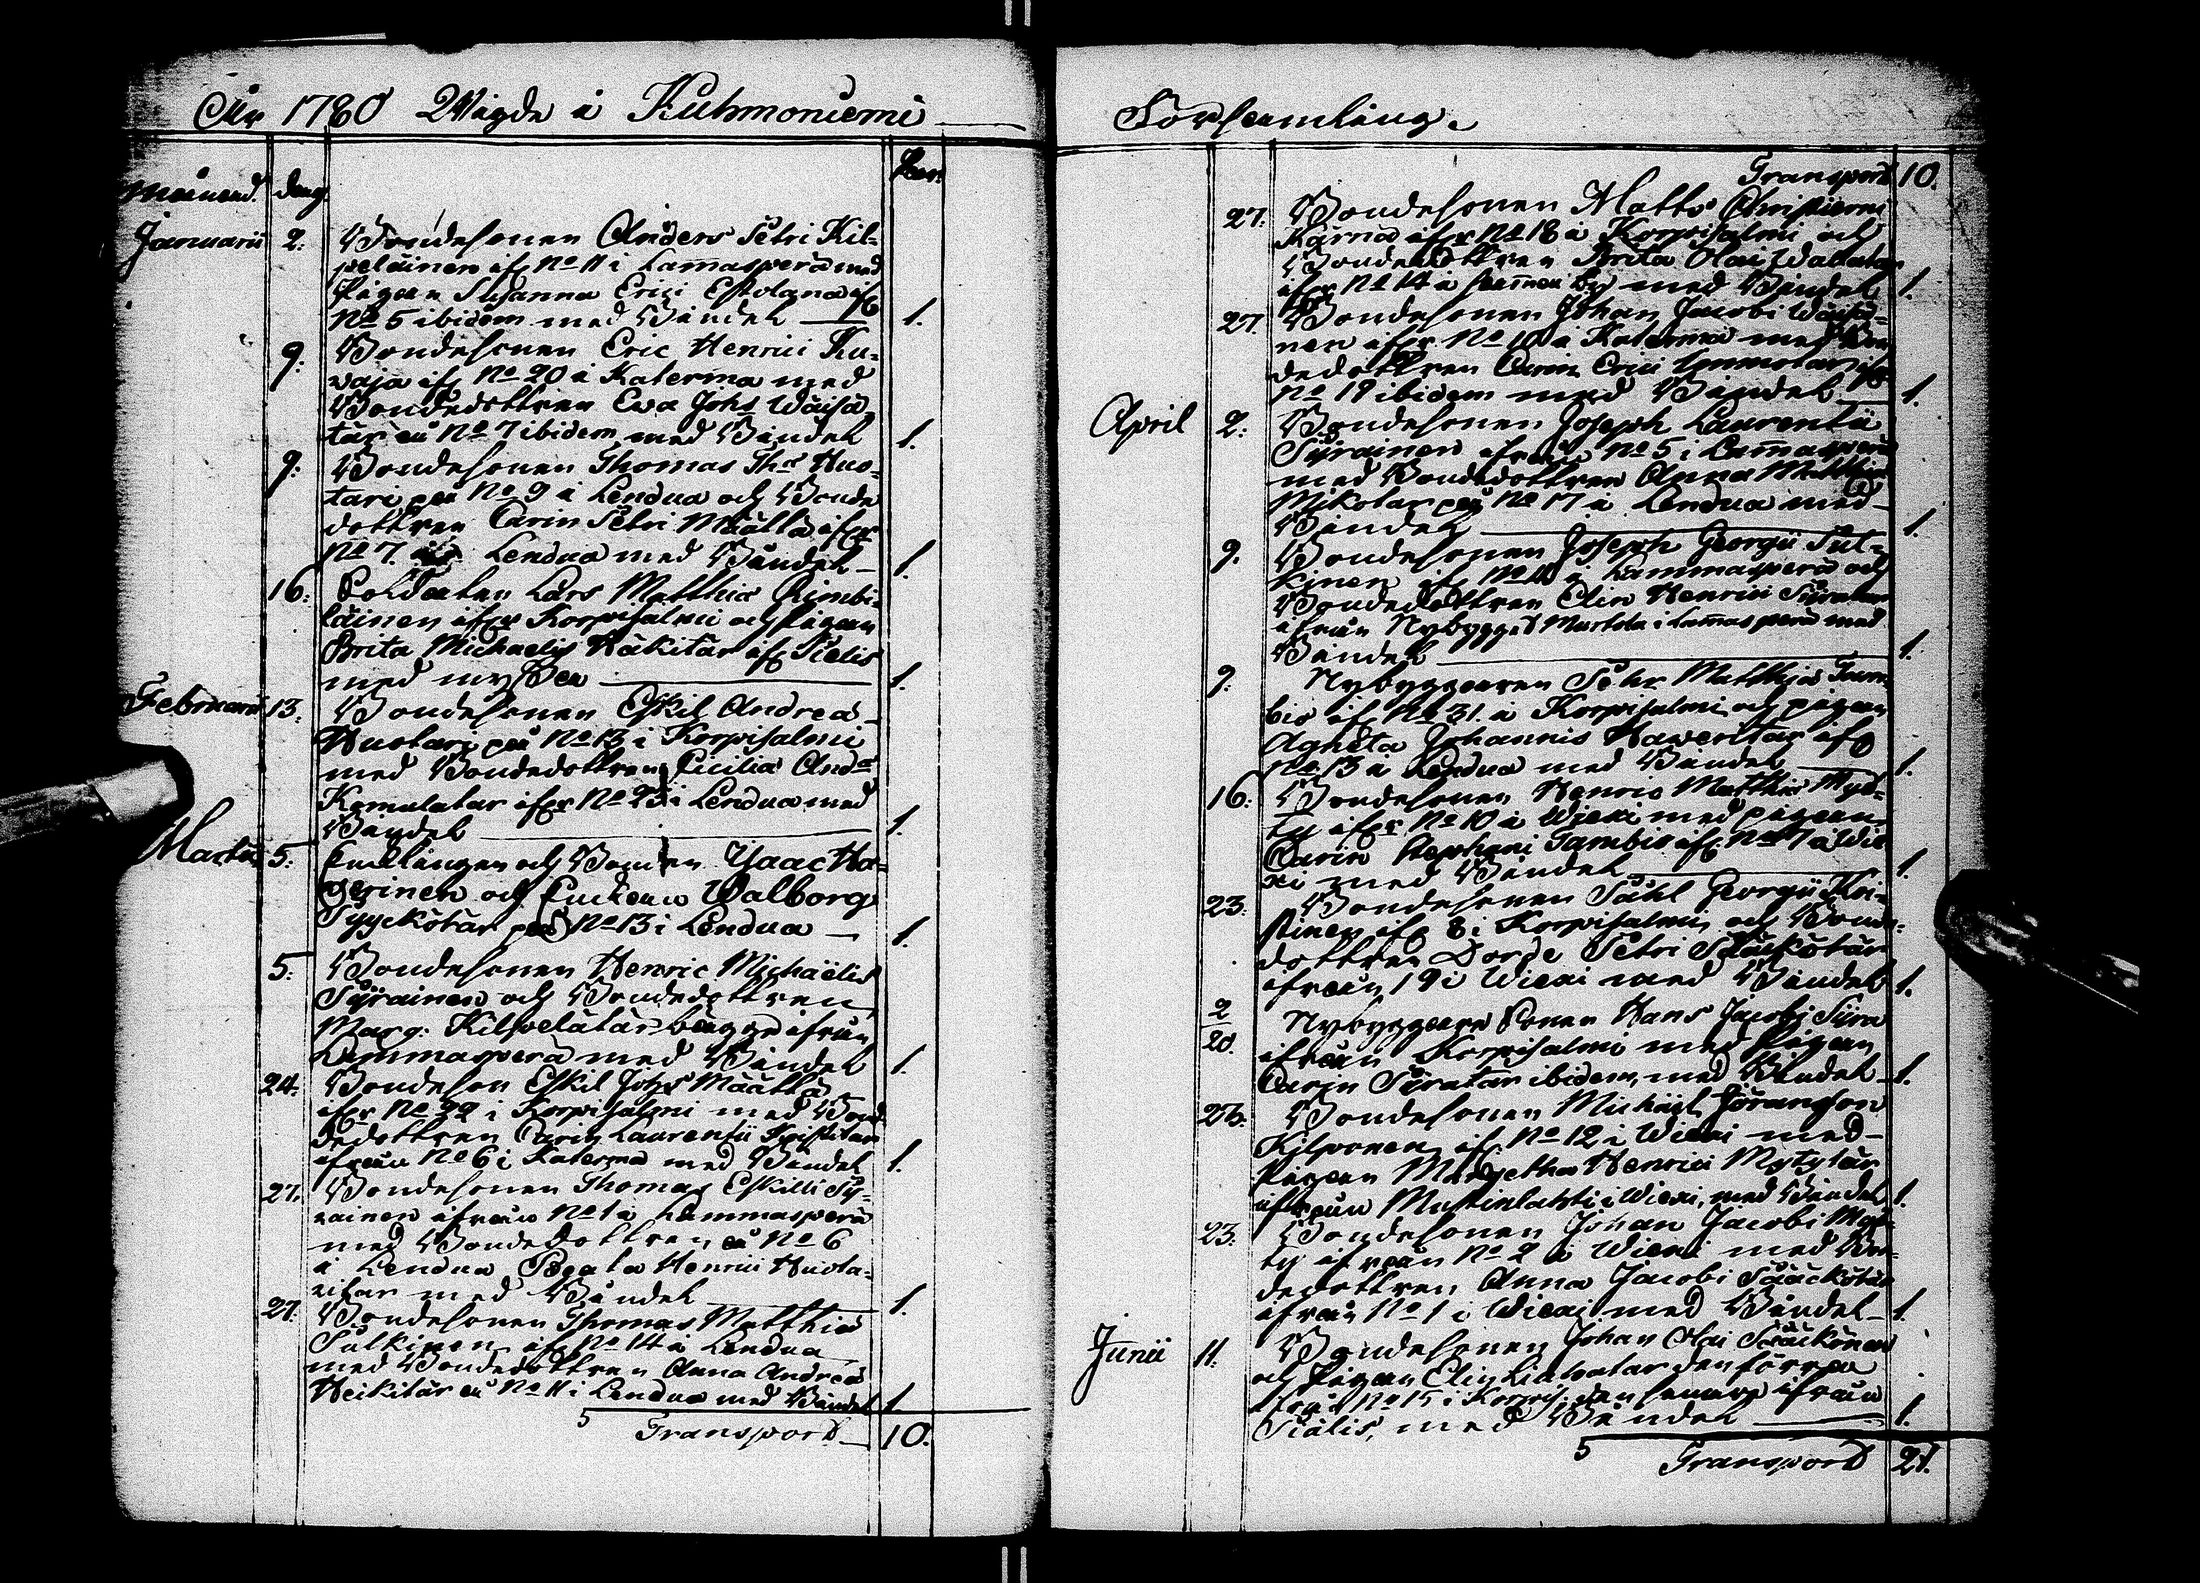 År 1780 Wigde i Kuhmoniemi Församling.
Månad. dag Par.
Januarii 2. Bondesonen Anders Petri Kil-
peläinen ifr. No 11 i Lam̄asperä med
Pigan Susanna Erici
No 5 ibidem med Bändel 1.
9. Bondesonen Eric Henrici Ku-
vaja ifr. No 20 i Katerma med
Bondedottren Eva Johs Wäisä-
tär på No 7 ibidem med Bändel 1.
9. Bondesonen Thomas Ths Huo-
tari på No 9 i Lendua och Bonde
dottren Carin Petri Määttä ifrn
No 7. Lendua med Bändel 1.
16. Soldaten Lars Matthiæ Rimbi-
läinen ifrn Korpisalmi och Pigan
Brita Michaelis Häkitär ifr. Pielis
med myssa 1.
Februarii 13. Bondesonen Eskil Andreæ
Huotari på No 13 i Korpisalmi
med Bondedottren Cicilia Andæ
Komulatar ifrn No 23 i Lendua med
Bändel 1.
Martii 5. Enklingen och Bonden Isaac Ha-
verinen och Enkan Walborg
på No 13 i Lendua 1.
5. Bondesonen Henric Michaëlis
Pyrainen och Bondedottren
Marg: Kilpelätär bägge ifrån
Lammasperä med Bändel 1.
24. Bondeson Eskil Johs Määttä
ifrn No 22 i Korpisalmi med Bon-
dedottren Carin Laurentii
ifrån No 6 i Katerma med Bändel 1.
27. Bondesonen Thomas Eskilli Py-
rainen ifrån No 1 i Lammasperä
med Bondedottren på No 6
i Lendua Beata Henrici Huota-
ritar med Bändel 1.
27. Bondesonen Thomas Matthiæ
Pulkinen ifr. No 14 i Lendua
med Bondedottren Anna Andreæ
Heikitär på No 11 i Lendua med Bändel 1.
Transport 10.
Transport 10.
27. Bondesonen Matts Christierni
Kärnä ifrn No 18 i Korpisalmi och
Bondedottren Brita Olai
ifrn No 14 i by med Bändel 1.
27. Bondesonen Johan Jacobi Wäisä-
nen ifrn No 10 i Katerma med Bon
dedottren Carin Erici ifr.
No 19 ibidem med Bändel 1.
April 2. Bondesonen Joseph Laurentii
Pyrainen ifrån No 5 i Lam̄asperä
med Bondedottren Anna Matthiæ
Mikotar på No 17 i Lendua med
Bändel 1.
9. Bondesonen Joseph Georgii Pul-
kinen ifr. No i Lammasperä och
Bondedottren Elin Henrici Pyratar
ifrån Nybygget Murtola i Lam̄asperä med
Bändel 1.
9. Nybyggaren Pehr Matthiæ Tam-
bio ifr. No 31. i Korpisalmi och pigan
Agneta Johannis Haveritar ifr.
No 13 i Lendua med Bändel 1.
16. Bondesonen Henric Matthiæ Myl-
ty ifrn No 10 i Wiexi med pigan
Carin Stephani Tambio ifr. No 7 i Wie
xi med Bändel 1.
23. Bondesonen Påhl Georgii Kri-
stinen ifr. 8 i Korpisalmi och Bonde-
dottren Dorde Petri Pääkötär
ifrån 19 i Wiexi med Bändel 1.
2
20. Nybyggare Sonen Hans Jacobi Pyra
ifrån Korpisalmi med Pigan
Carin Pyratar ibidem, med Bändel 1.
Bondesonen Michäel Göransson
Kilponen ifr. No 12 i Wiexi med
Pigan Margetha Henrici Mytytär
ifrån Mustinlahti i Wiexi, med Bändel 1.
23. Bondesonen Johan Jacobi Myl-
ty ifrån No 2 i Wiexi med Bon-
dedottren Anna Jacobi Pääckötär
ifrån No 1 i Wiexi med Bändel 1.
Junii 11. Bondesonen Johan Olai Pääkönen
och Pigan Elin Liehatar den förra
ifrån No 15 i Korpis. den senare ifrån
Pielis, med Bändel 1.
Transport 21.